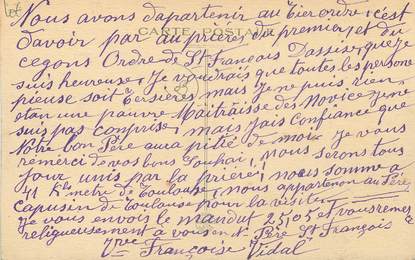 Nous avons dapartenir au tier ordre, c'est
CARTE POSTALE
davoir par au prières du premier et du
cegons Ordre de St François Dassise, que je
suis heureuse, Je voudrais que toutes les persone
pieuse soit Tersières, mais Je ne puis rien,
etan une pauvre Maitraisse des Novice Je ne
suis pas comprise, mais Jais Confiance que
Notre bon Père aura pitié de moi. Je vous
remerci de vos bons Souhai, nous serons tous
jour unis par la prière, nous somme a
41 Klmetre de Toulouse, nous appartenon au Père
capusin de Toulouse pour la visite,
Je vous envois le mandat 25f05 et vous remer
religueusement a vous en N. Père St François
Vve Françoise Vidal